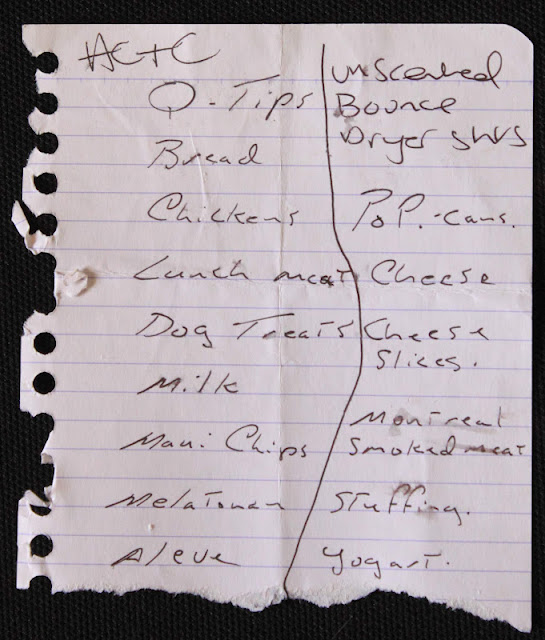 Q-Tips
Bread
Chickens
Lunch meat
Dog Treats
Milk
Maui Chips
Melatonan
Aleve
unscented
Bounce
Dryer
Pop-cans.
Cheese
Cheese
Slices.
Montreal
Smoked meat
Stuffing.
Yogart.